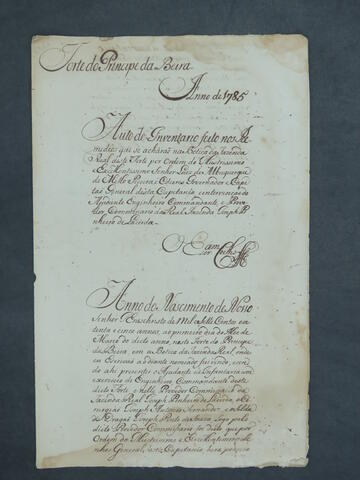 Forte do Principe da Beira
Anno de 1785
Auto de Inventario feito nos Re-
medios que se acharão na Botica da Fazenda
Real deste Forte por Ordem do Illustrissimo
e Excellentissimo Senhor Luiz de Albuquerque
de Mello Pereira e Caceres Governador e Capi-
tão General desta Capitania e intervenção do
Ajudante Engenheiro Commandante, e Prove-
dor Commissario da Real Fazenda Joseph Pi-
nheiro de Lacerda.
O
Anno do Nascimento de Nosso
Senhor Jesus Christo de Mil e sette Centos e oi-
tenta e cinco annos, ao primeiro dia do Mes de
Março do dicto anno, neste Forte do Principe
da Beira, em a Botica da Fazenda Real, onde
eu Escrivão ao diante nomeado fui vindo, e sen-
do ahi prezentes o Ajudante de Infantaria com
exercicio de Engenheiro Commandante deste
dicto Forte e nelle Provedor Commissario da
Fazenda Real Joseph Pinheiro de Lacerda, o Ci-
rurgião Joseph Antonio Fernandes, e o
de Dragões Joseph da logo pelo
dicto Provedor Commissario foi dicto que por
Ordem do Illustrissimo e Excellentissimo Se-
nhor General desta Capitania, hera